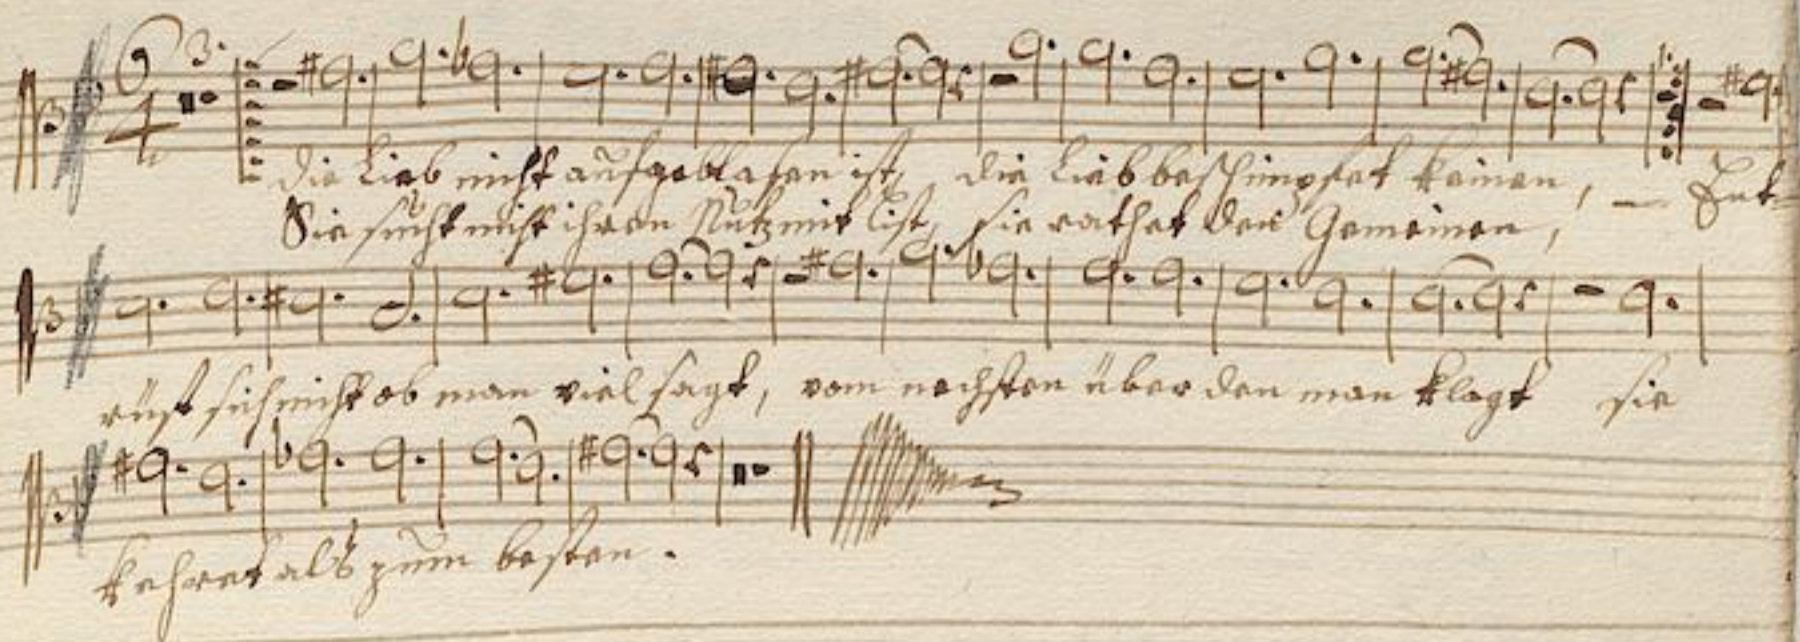 6 3.
4
die Lieb nicht aufgeblasen ist, die Lieb beschimpfet keinen, – Ent-
Sie sücht nicht ihren Nutz mit list, sie rathet den Gemeinen,
rüst sich nicht ob man viel sagt, vom nechsten über den man klagt sie
kehret als zum besten.